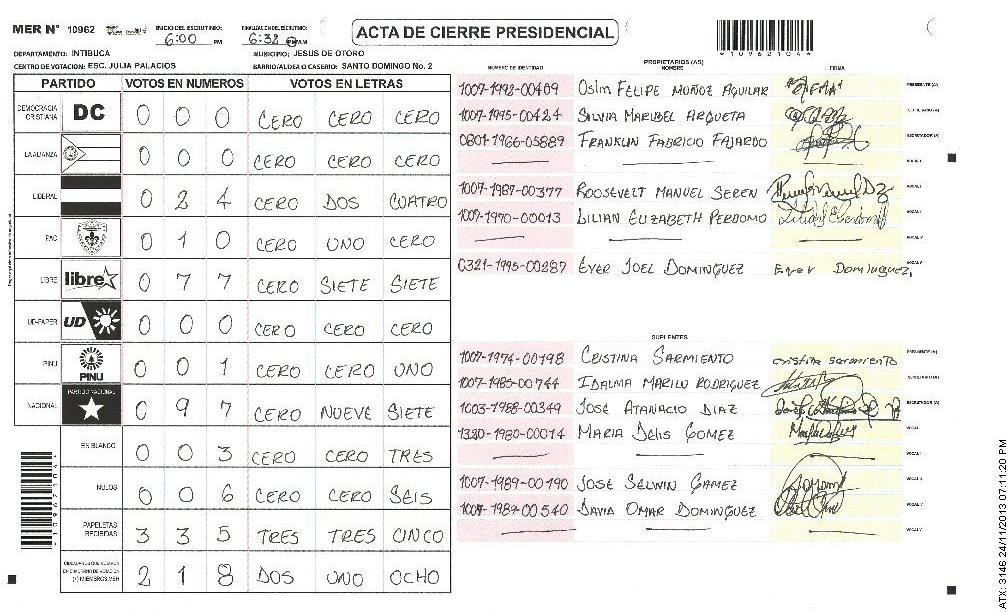 MER Nº 10962 INICIO DEL ESCRUTINIO: 6:00 PM FINALIZACION DEL ESCRUTINIO: 6:32 PM AM
ACTA DE CIERRE PRESIDENCIAL
*109621041*
DEPARTAMENTO: INTIBUCA MUNICIPIO: JESUS DE OTORO
CENTRO DE VOTACION: ESC. JULIA PALACIOS BARRIO/ALDEA O CASERIO: SANTO DOMINGO No. 2
PARTIDO VOTOS EN NUMEROS VOTOS EN LETRAS
DEMOCRACIA CRISTIANA DC 0 0 0 CERO CERO CERO
LA ALIANZA 0 0 0 CERO CERO CERO
LIBERAL 0 2 4 CERO DOS CUATRO
PAC 0 1 0 CERO UNO CERO
LIBRE libre 0 7 7 CERO SIETE SIETE
UD-FAPER UD 0 0 0 CERO CERO CERO
PINU PINU 0 0 1 CERO CERO UNO
NACIONAL PARTIDO NACIONAL 0 9 7 CERO NUEVE SIETE
EN BLANCO 0 0 3 CERO CERO TRES
NULOS 0 0 6 CERO CERO SEIS
PAPELETAS RECIBIDAS 3 3 5 TRES TRES CINCO
CIUDADANOS QUE VOTARON EN CUADERNO DE VOTACION (+) MIEMBROS MER 2 1 8 DOS UNO OCHO
PROPIETARIOS (AS)
NUMERO DE IDENTIDAD NOMBRE FIRMA
1007-1992-00409 Oslin FELIPE MUÑOZ AGUILAR PRESIDENTE (A)
1007-1995-00424 SILVIA MARIBEL ARGUETA SECRETARIO (A)
0801-1966-05889 FRANKLIN FABRICIO FAJARDO ESCRUTADOR (A)
VOCAL I
1007-1987-00377 ROOSEVELT MANUEL SEREN VOCAL II
1007-1970-00013 LILIAN ELIZABETH PERDOMO VOCAL III
VOCAL IV
0321-1995-00287 EVER JOEL DOMINGUEZ Ever Dominguez VOCAL V
SUPLENTES
1007-1974-00198 CRISTINA SARMIENTO cristina sarmiento PRESIDENTE (A)
1007-1985-00744 IDALMA MARILU RODRIGUEZ SECRETARIO (A)
1003-1988-00349 JOSÉ ATANACIO DIAZ ESCRUTADOR (A)
1320-1980-00014 MARIA DELIS GOMEZ VOCAL I
VOCAL II
1007-1989-00190 JOSÉ SELWIN GAMEZ VOCAL III
1007-1987-00540 DAVIA OMAR DOMINGUEZ VOCAL IV
VOCAL V
*109621041*
ATX: 3146 24/11/2013 07:11:20 PM